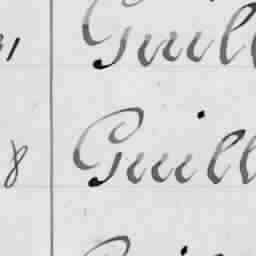 31 Guill
8 Guill